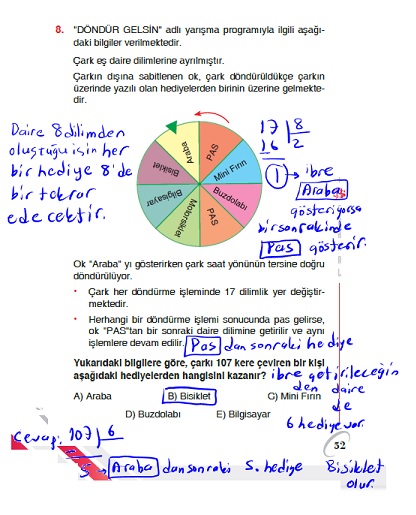 8. "DÖNDÜR GELSİN" adlı yarışma programıyla ilgili aşağı-
daki bilgiler verilmektedir.
Çark eş daire dilimlerine ayrılmıştır.
Çarkın dışına sabitlenen ok, çark döndürüldükçe çarkın
üzerinde yazılı olan hediyelerden birinin üzerine gelmekte-
dir.
Daire 8 dilimden
oluştuğu için her
bir hediye 8'de
bir tekrar
edecektir.
Araba
PAS
Mini Fırın
Buzdolabı
PAS
Motorsiklet
Bilgisayar
Bisiklet
17 8
16 2
1 → ibre
Araba
gösteriyorsa
bir sonrakinde
Pas gösterir.
Ok "Araba" yı gösterirken çark saat yönünün tersine doğru
döndürülüyor.
• Çark her döndürme işleminde 17 dilimlik yer değiştir-
mektedir.
• Herhangi bir döndürme işlemi sonucunda pas gelirse,
ok "PAS"tan bir sonraki daire dilimine getirilir ve aynı
işlemlere devam edilir.
Pas dan sonraki hediye
Yukarıdaki bilgilere göre, çarkı 107 kere çeviren bir kişi
aşağıdaki hediyelerden hangisini kazanır?
ibre getirileceğin
den daire
de
6 hediye var.
A) Araba B) Bisiklet C) Mini Fırın
D) Buzdolabı E) Bilgisayar
Cevap: 107 6
52
5 → Araba dan sonraki 5. hediye Bisiklet
olur.